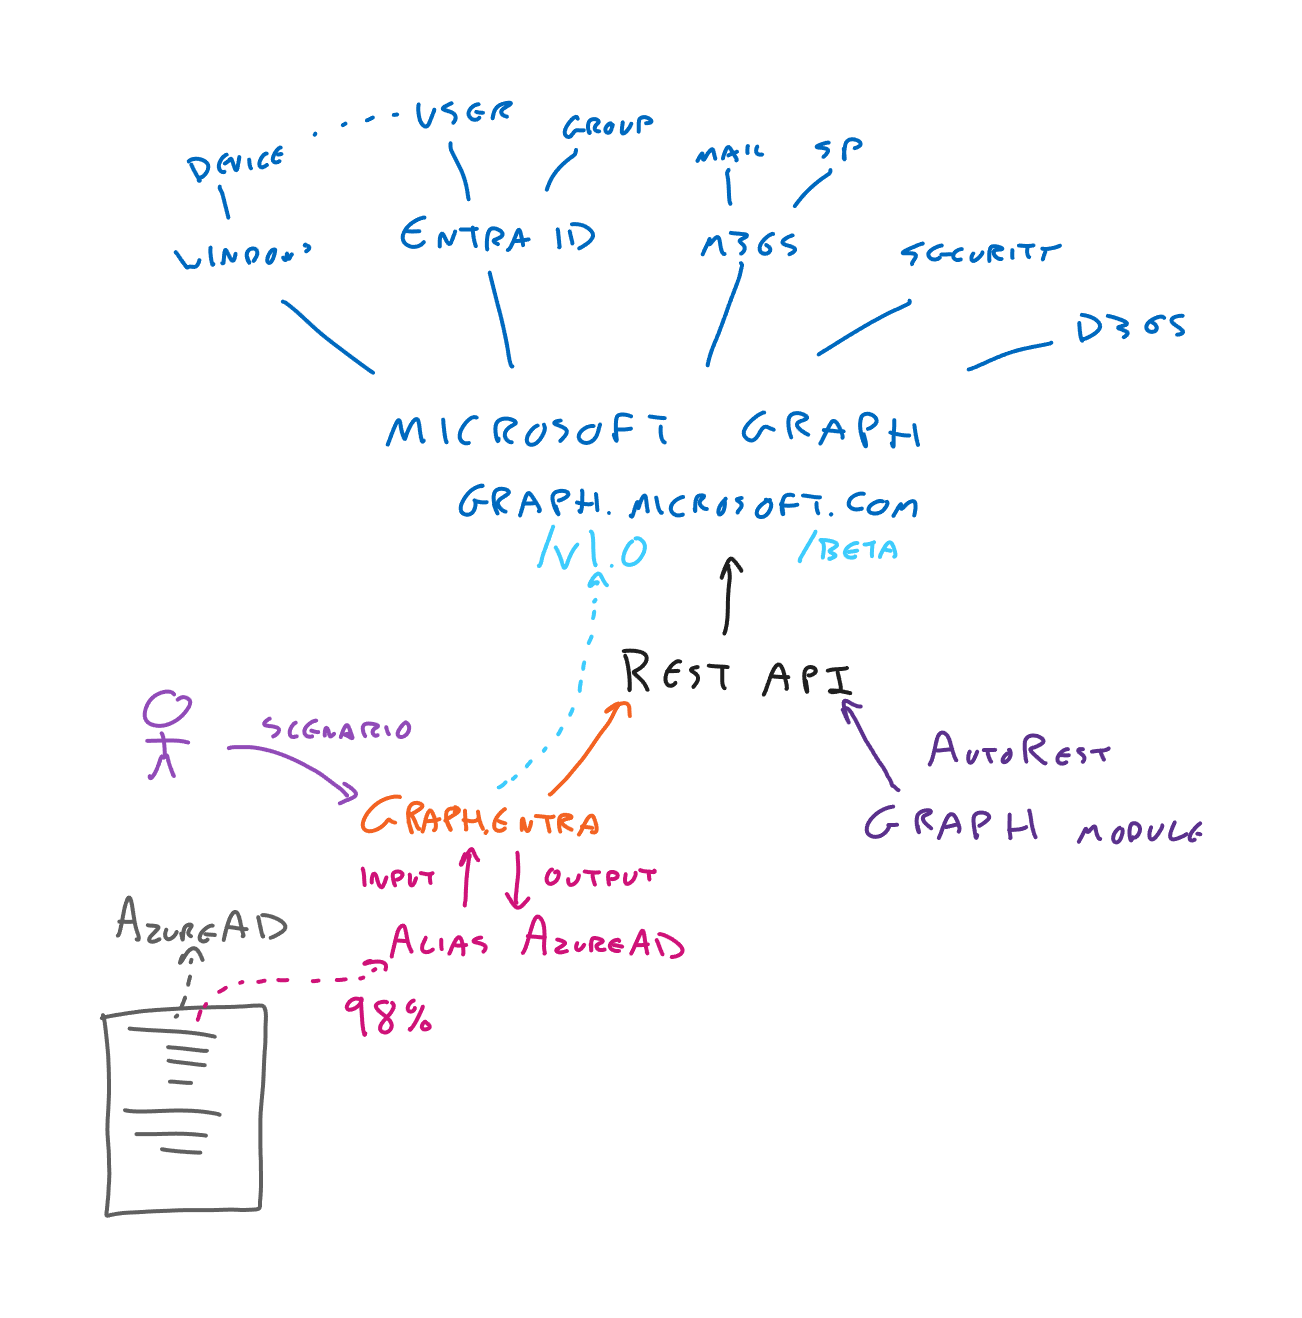 USER
GROUP
DEVICE
MAIL
SP
WINDOWS
ENTRA ID
M365
SECURITY
D365
MICROSOFT GRAPH
GRAPH.MICROSOFT.COM
/V1.0
/BETA
REST API
SCENARIO
AUTOREST
GRAPH.ENTRA
GRAPH MODULE
INPUT
OUTPUT
AZUREAD
ALIAS AZUREAD
98%